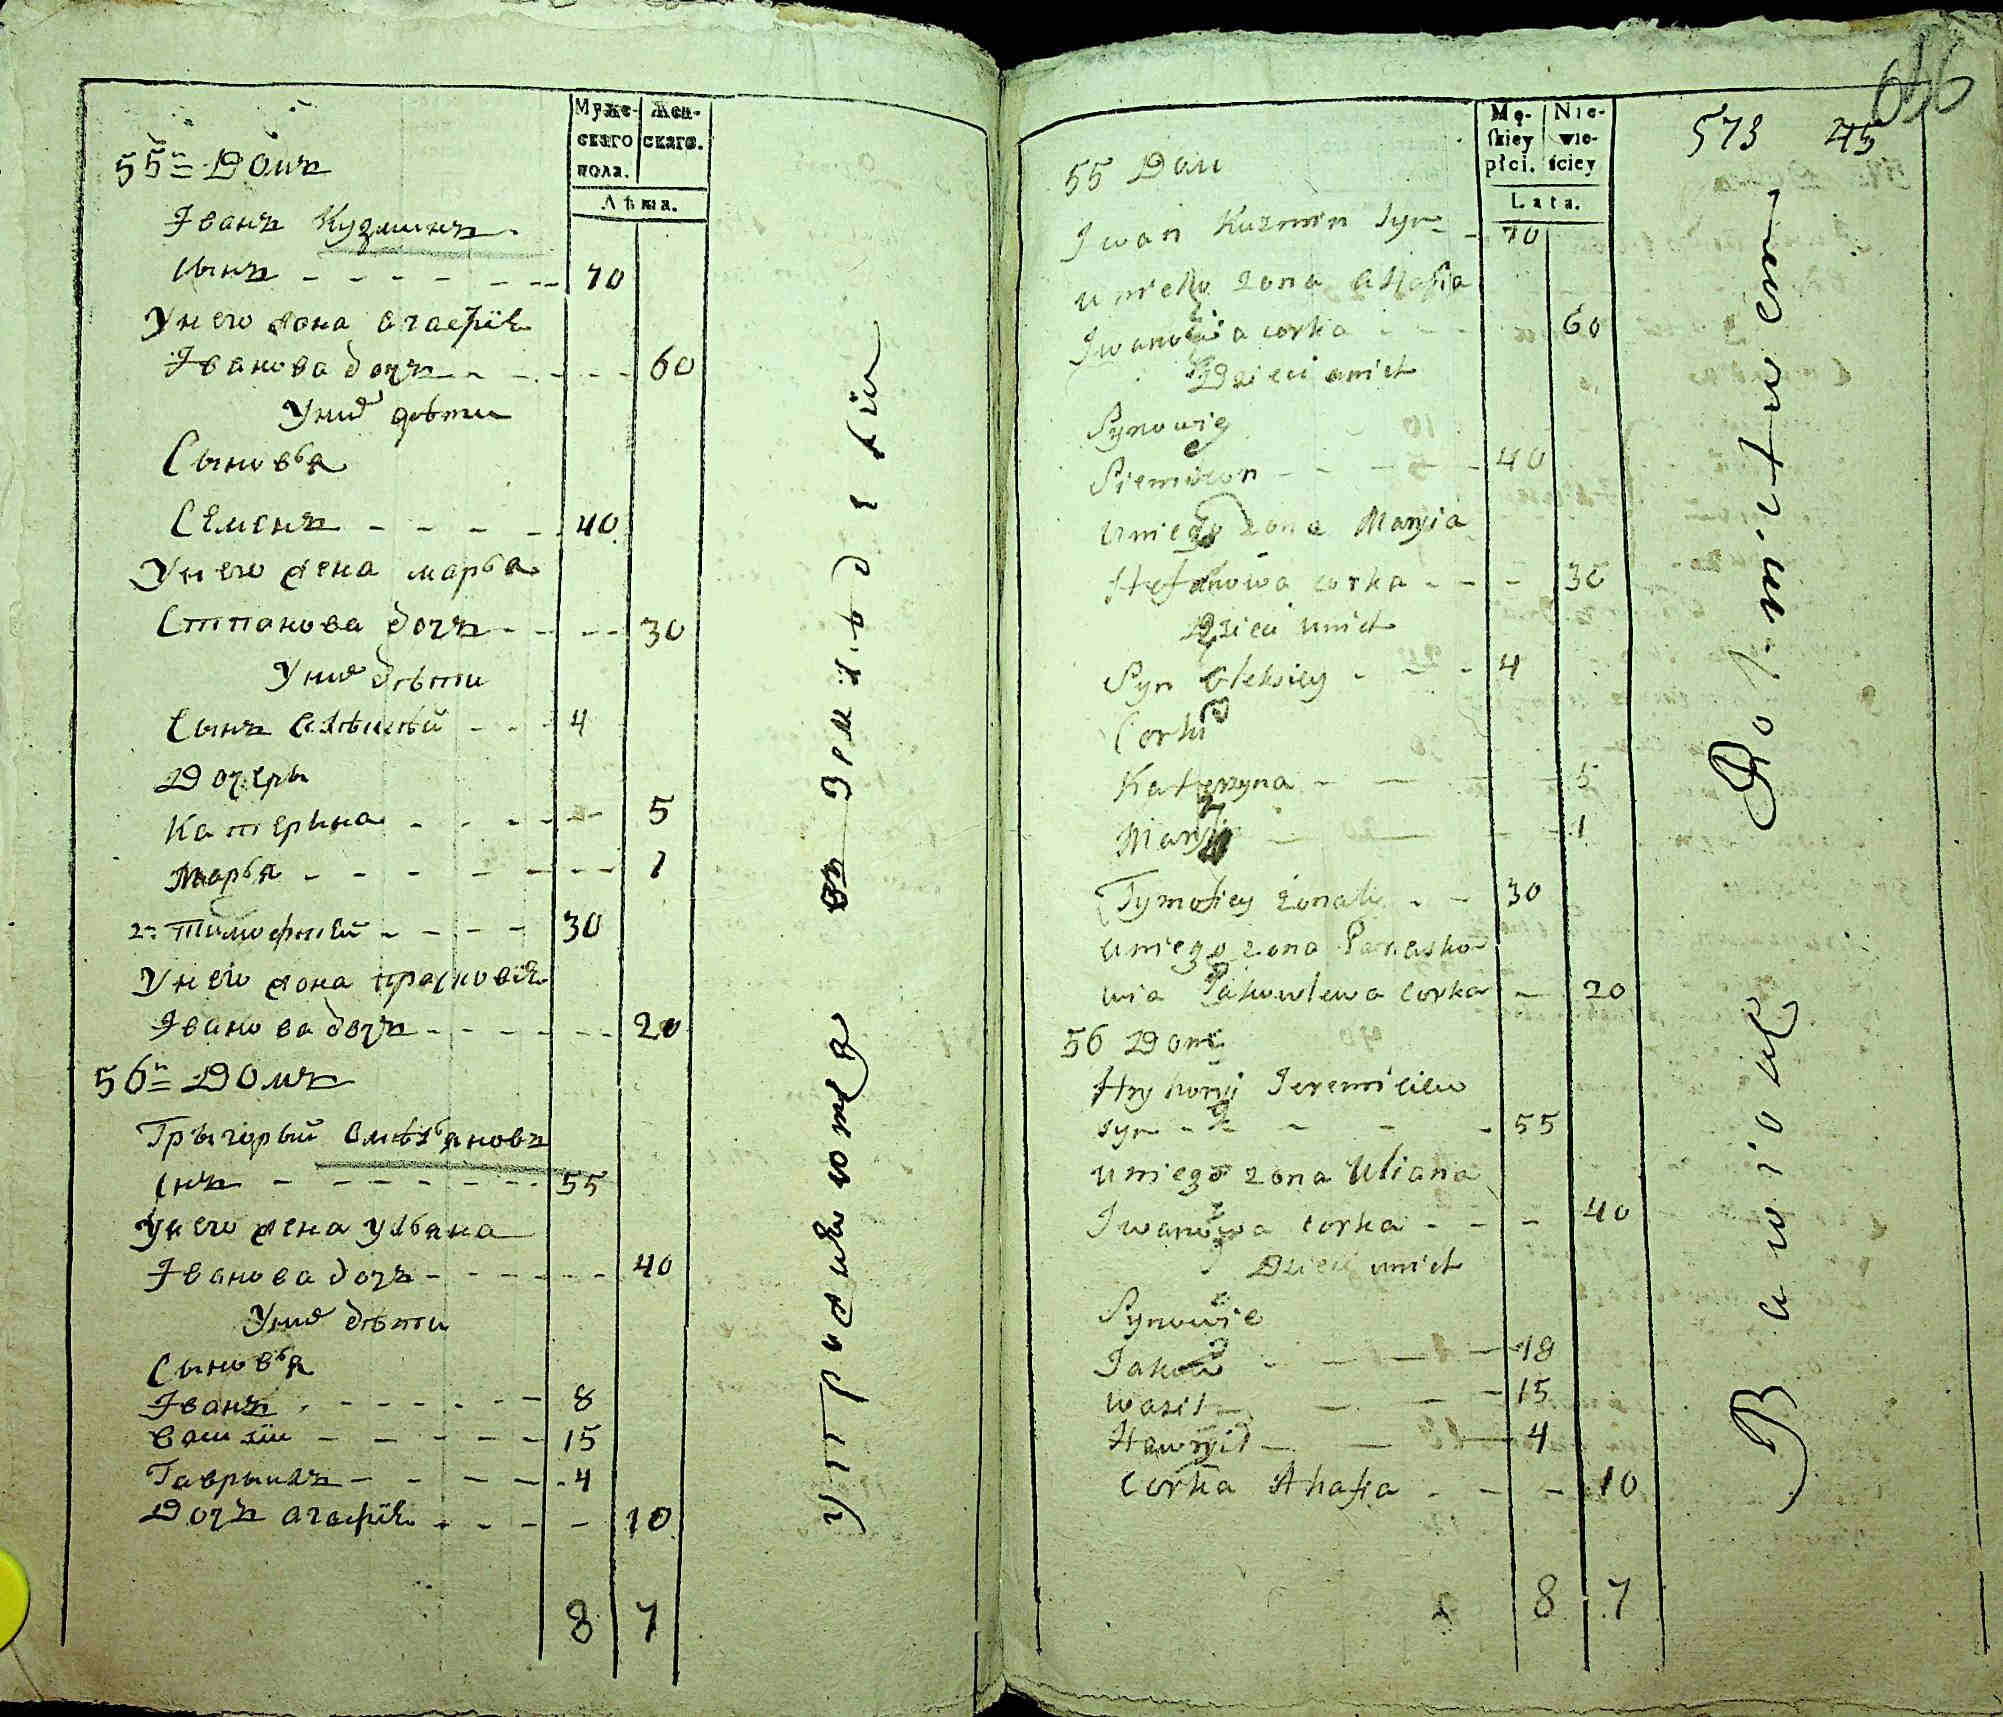 Муже-
скаго
пола.
Жен-
скаго.
Лѣта.
55й Домъ
Іванъ Кузминъ
сынъ - - - - - - 70
У него жона агафія
Іванова дочъ - - - - 60
У них дѣти
Сыновья
Семенъ - - - - 40
У него жена марья
Степанова дочъ - - - 30
У них дѣти
Сынъ - - - 4
Дочеры
Катерына - - - - - 5
Марья - - - - - - 1
2й Тимофѣй - - - - 30
У него жона прасковія
Іванова дочъ - - - - - 20
56й Домъ
Грыгорый
снъ - - - - - - 55
У него жена Ульяна
Іванова дочъ - - - - - 40
У них дѣти
Сыновья
Іванъ - - - - - - 8
василі - - - - - 15
Гаврыилъ - - - - - 4
Дочъ агафія - - - - 10
8 7
646
573 45
Mę-
skiey
płci.
Nie-
wie-
ściey
Lata.
55 Dom
Iwan Kuzmin Syn - 70
u niego zona Ahafia
Iwanowa corka - - - 60
Dzieci unich
Synowie
Siemion - - - - - 40
Uniego zona Maryia
Stefanowa corka - - - 30
Dzieci unich
Syn Oleksiey - - - 4
Corki
Katerzyna - - - - 5
Marya - - - - 1
Tymofiey żonaty - - 30
uniego zona Parasko
wia Jakowlewa Corka - 20
56 Dom
Hryhory
syn - - - - - 55
uniego zona Uliana
Iwanowa corka - - - 40
Dzieci unich
Synowie
Jakow - - - - 18
wasil - - - - 15
Hawrył - - - 4
Corka Ahafia - - - 10
8 7